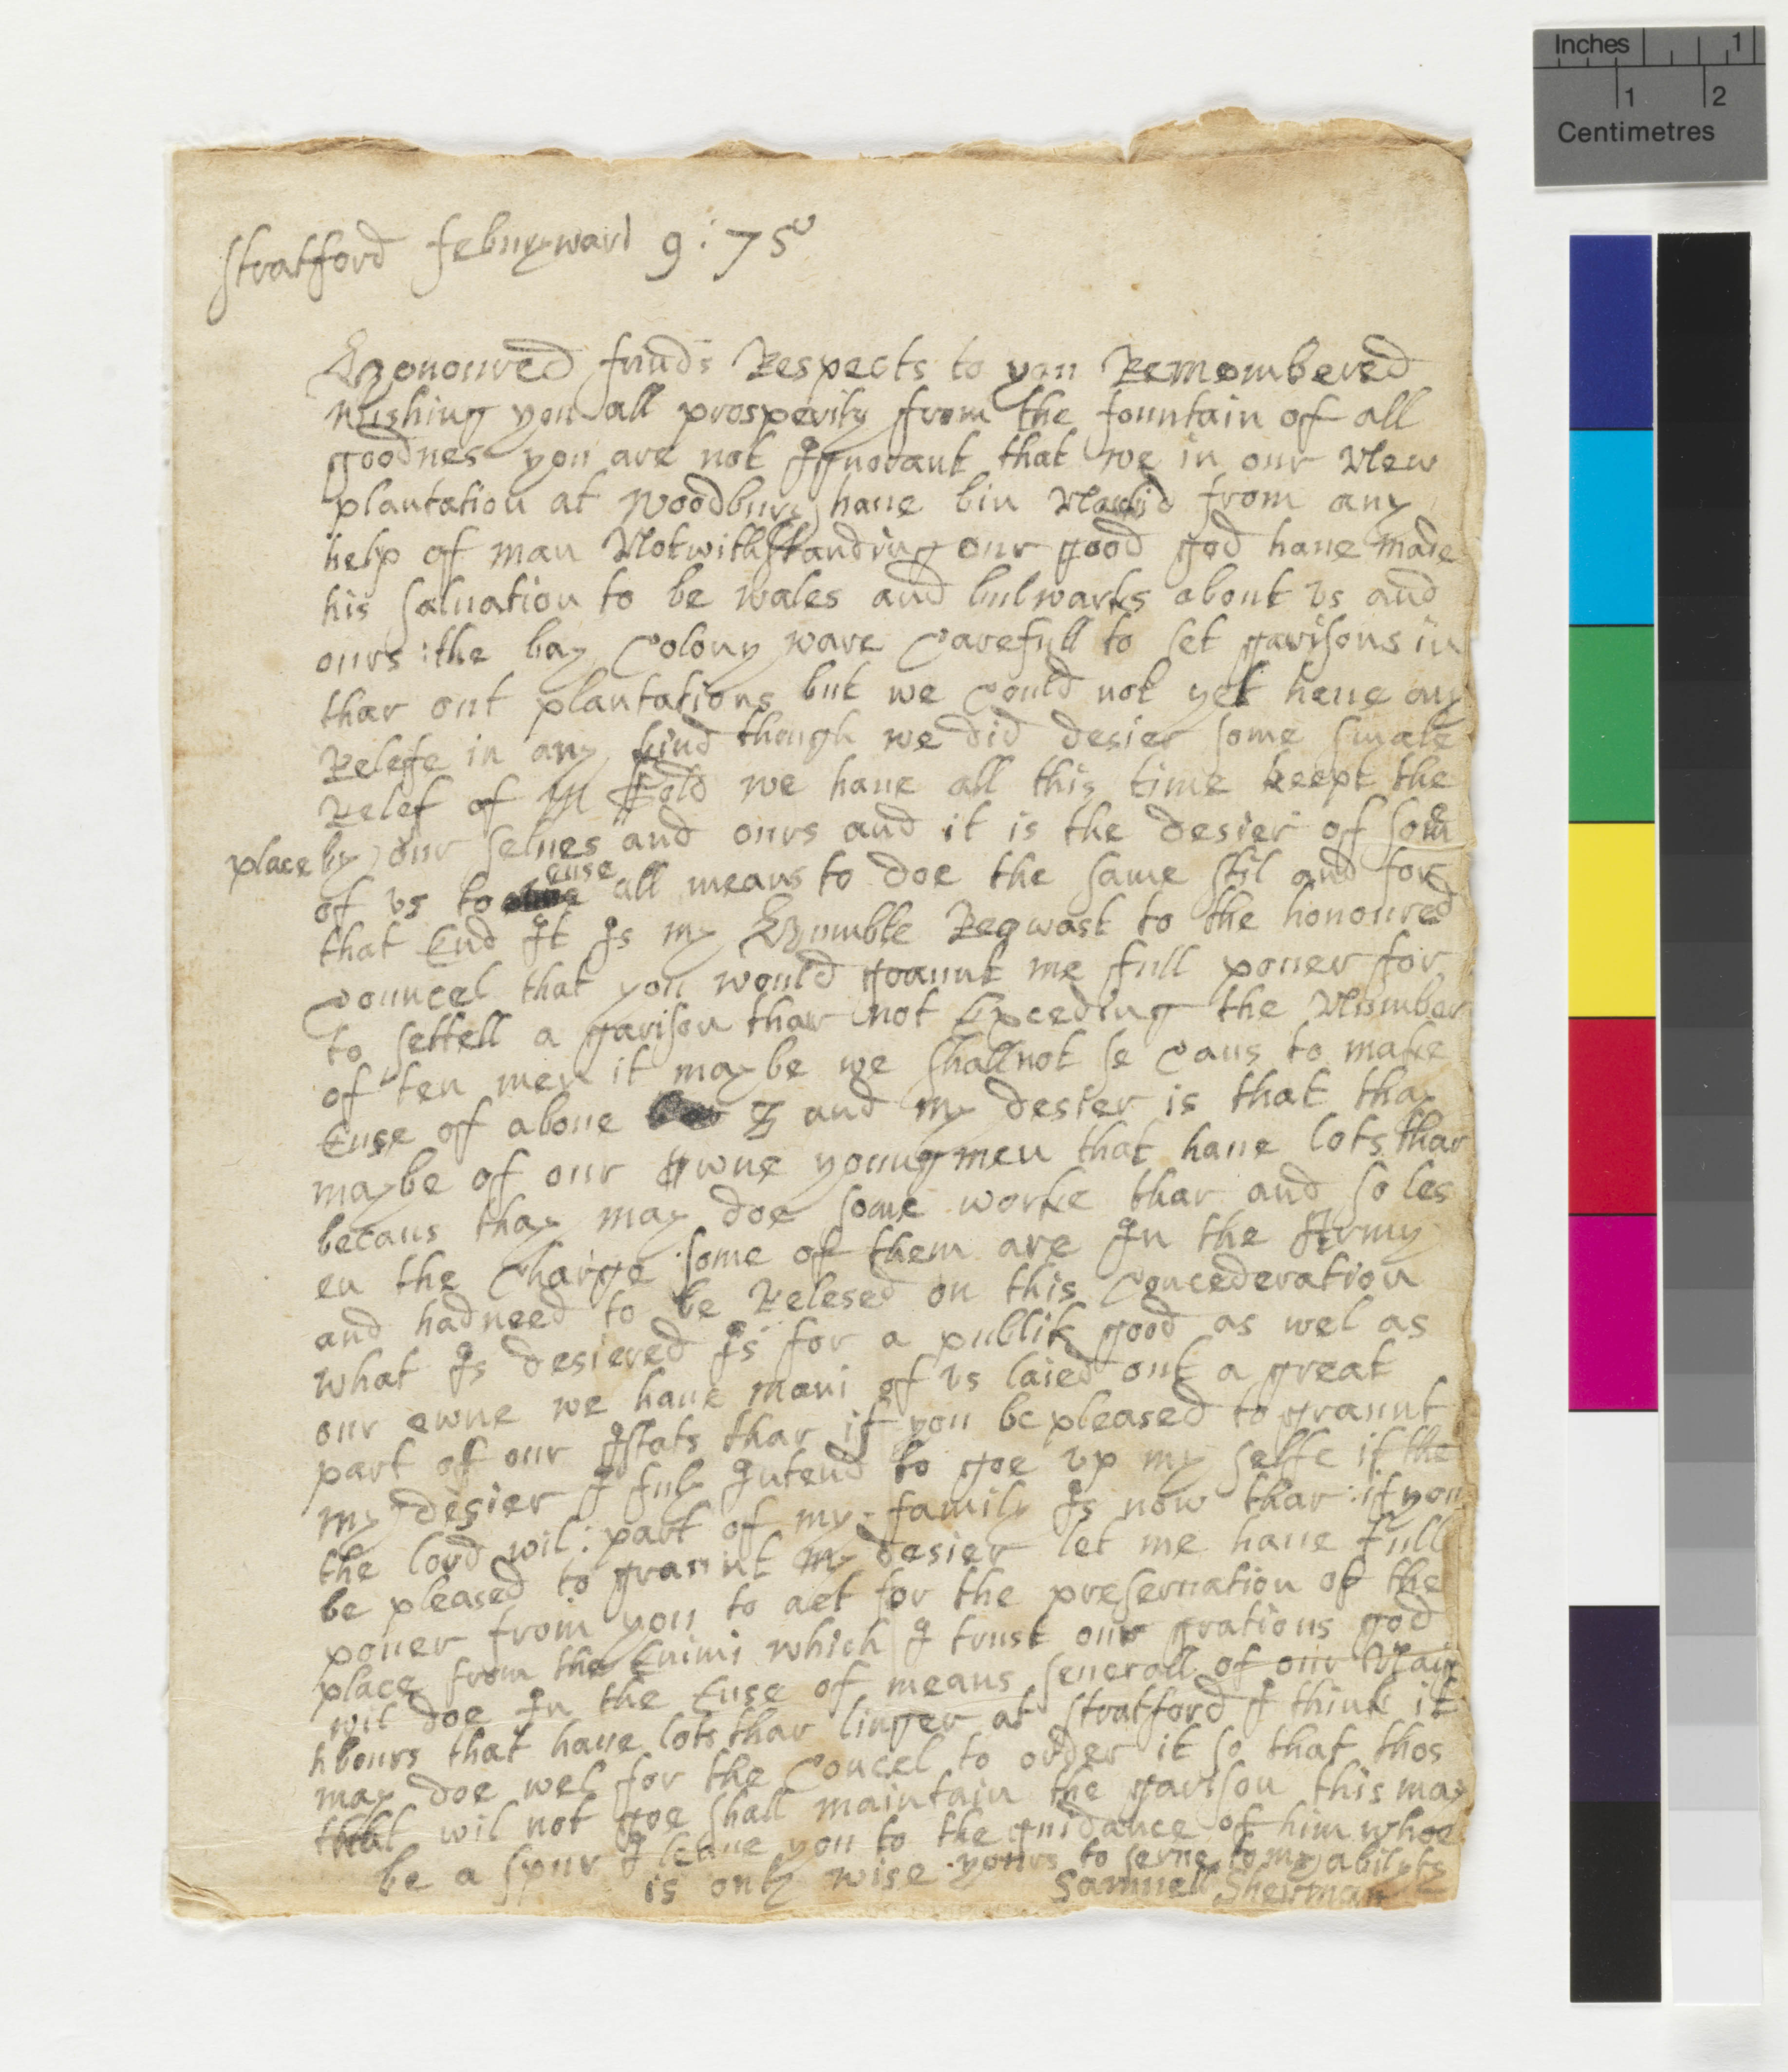 Stratford febueywari 9 : 75
Hhonoured friuds Respects to you Remombered
wishing you all prosperity from the fountain of all
goodnes you are not Ignorant that we in our New
plantation at woodbury haue bin from any
help of man Notwithstanding our good god haue made
his saluation to be wales and bulwarks about vs and
ours : the bay Colony ware Carefull to set garisons in
thar out plantations but we Could not yet haue any
Relefe in any kind though we did desier some smale
Relef of we haue all this time keept the
place by our selues and ours and it is the desier of som
of vs to euse all means to doe the same stil and for
that End It Is my Hhumble Reqwast to the honoured
Councel that you would graunt me full pouer for
to settell a garison thar not Exceeding the Number
of ten men it may be we shall not se Caus to make
Euse of aboue and my desier is that thay
maybe of our owne young men that haue lots thar
becaus thay may doe some worke thar and so les
en the Charge some of them are In the Army
and had need to be Relesed on this Concederation
what Is desiered Is for a publik good as wel as
our owne we haue mani of vs laied out a great
part of our Istats thar if you be pleased to graunt
my desier I fuly Intend to goe vp my selfe if the
the lord wil : part of my family Is now thar : if you
be pleased to graunt my desier let me haue full
pouer from you to act for the preseruation of the
place from the Enimi which I trust our gratious god
wil doe In the Euse of means seuerall of our Naig
hbours that haue lots thar linger at stratford I think it
may doe wel for the Councel to order it so that thos
that wil not goe shall maintain the garison this may
be a spur I leaue you to the guidance of him whoe
is only wise yours to serue to my abilyts
Samuell Sherman
Inches 1
1 2
Centimetres